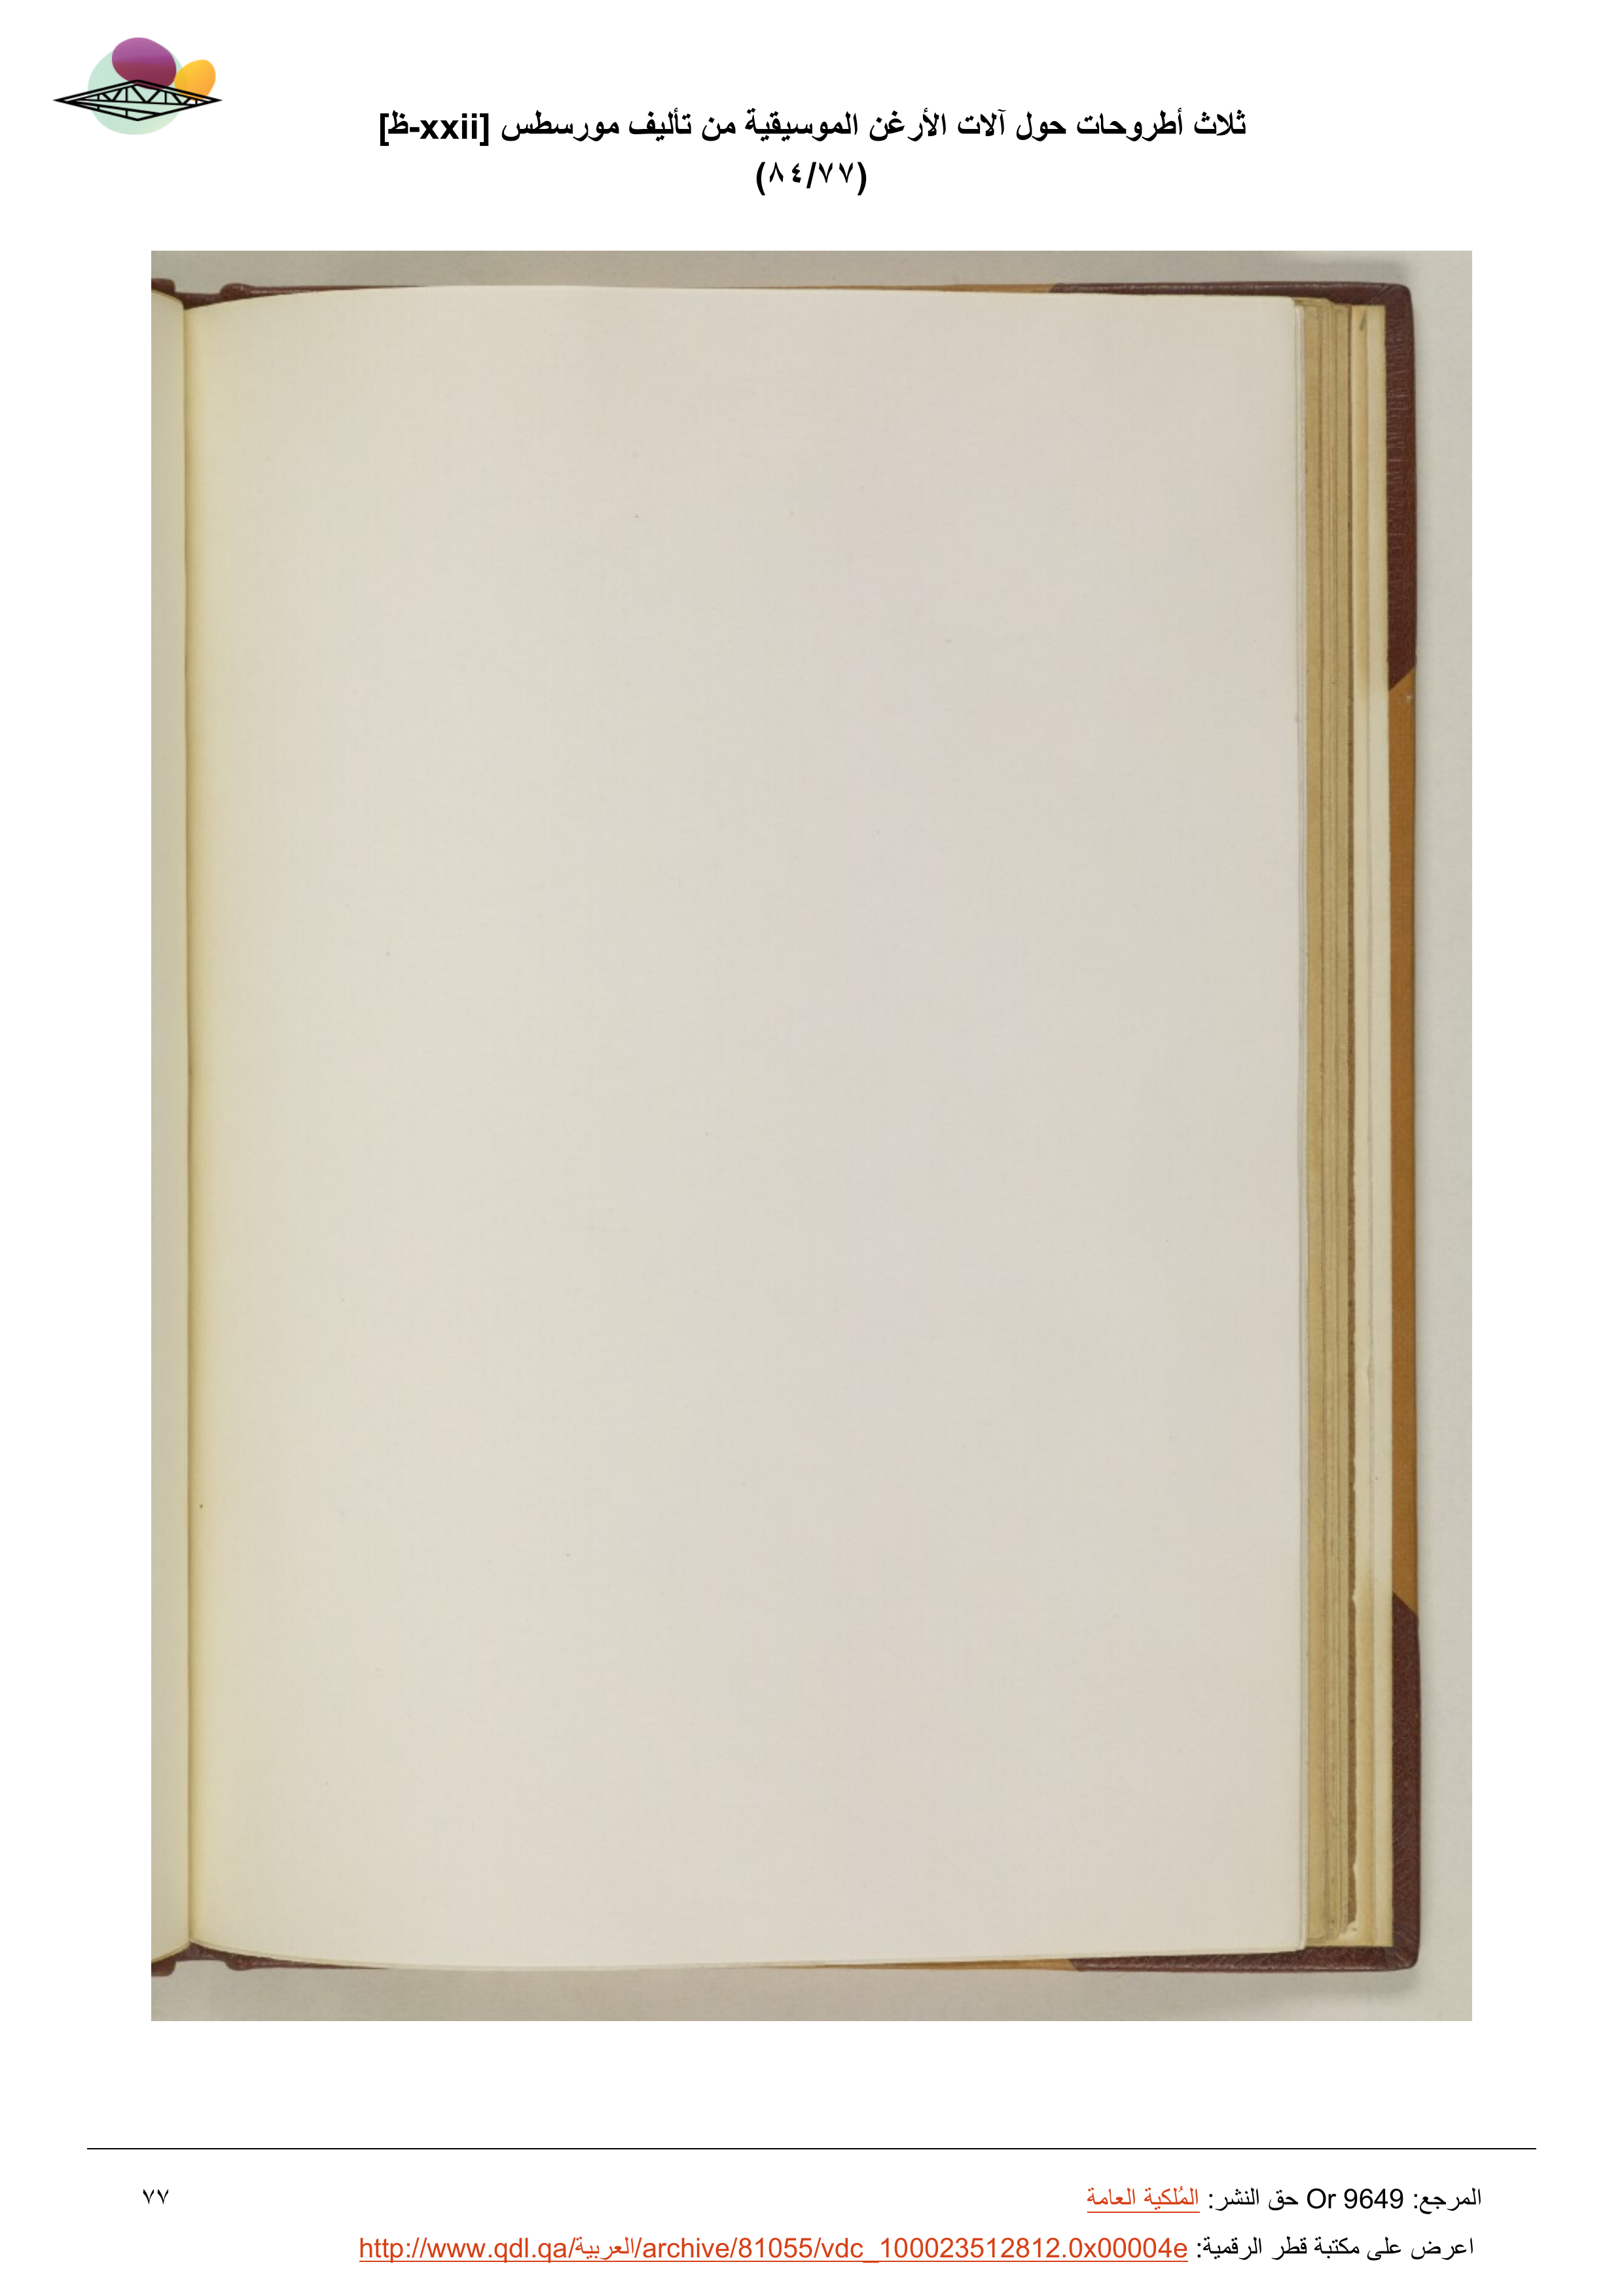 ثلاث أطروحات حول آلات الأرغن الموسيقية من تأليف مورسطس [xxii-ظ]
(٨٤/٧٧)
المرجع: Or 9649 حق النشر: المُلكية العامة
٧٧
اعرض على مكتبة قطر الرقمية: http://www.qdl.qa/العربية/archive/81055/vdc_100023512812.0x00004e